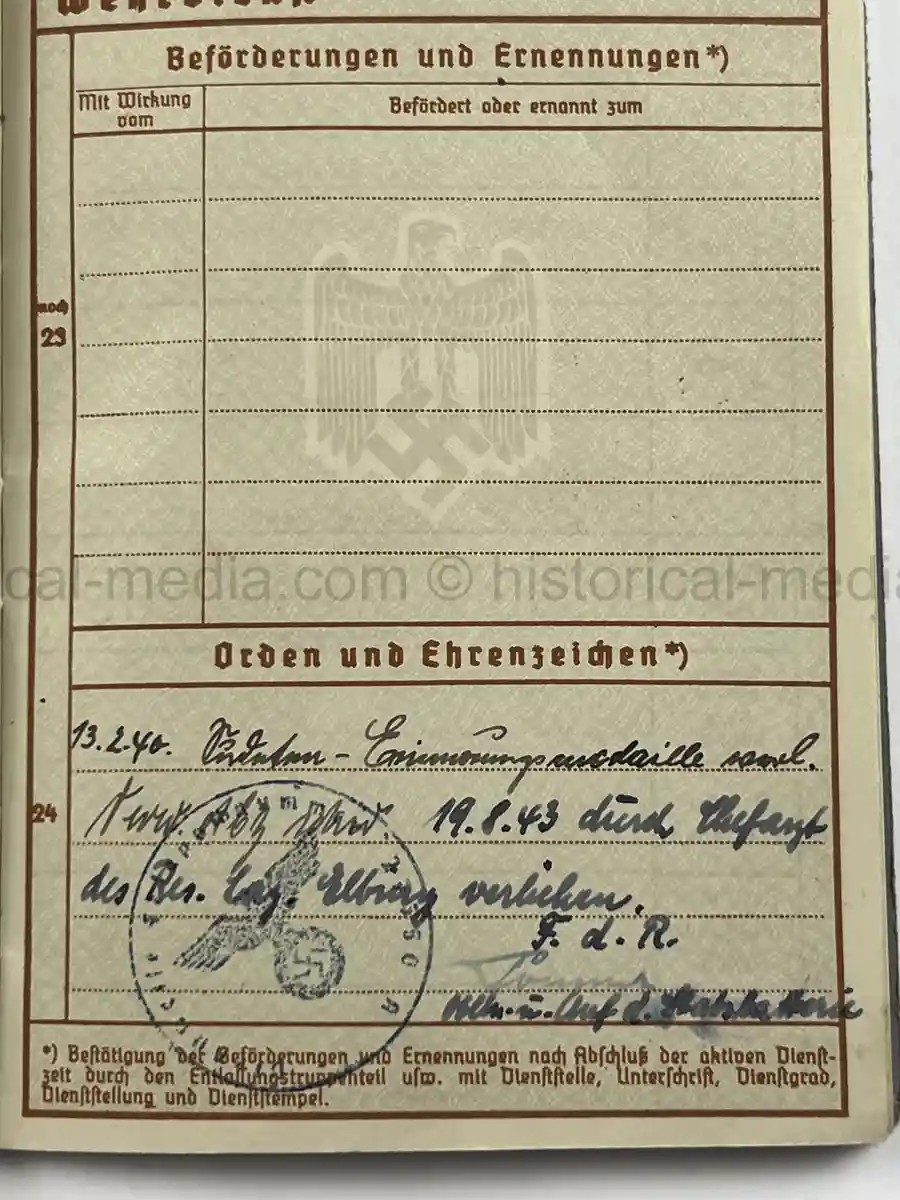 Beförderungen und Ernennungen*)
Mit Wirkung vom
Befördert oder ernannt zum
noch
23
cal-media.com © historical-media
Orden und Ehrenzeichen*)
13.2.40. Sudeten - Erinnerungsmedaille verl.
24
Verw. Abz. 19.8.43 durch Chefarzt
des Res. Laz. Elburg verliehen.
F. d. R.
Oltn. u. d. Stabsbatterie
*) Bestätigung der Beförderungen und Ernennungen nach Abschluß der aktiven Dienst-
zeit durch den Entlassungstruppenteil usw. mit Dienststelle, Unterschrift, Dienstgrad,
Dienststellung und Dienststempel.